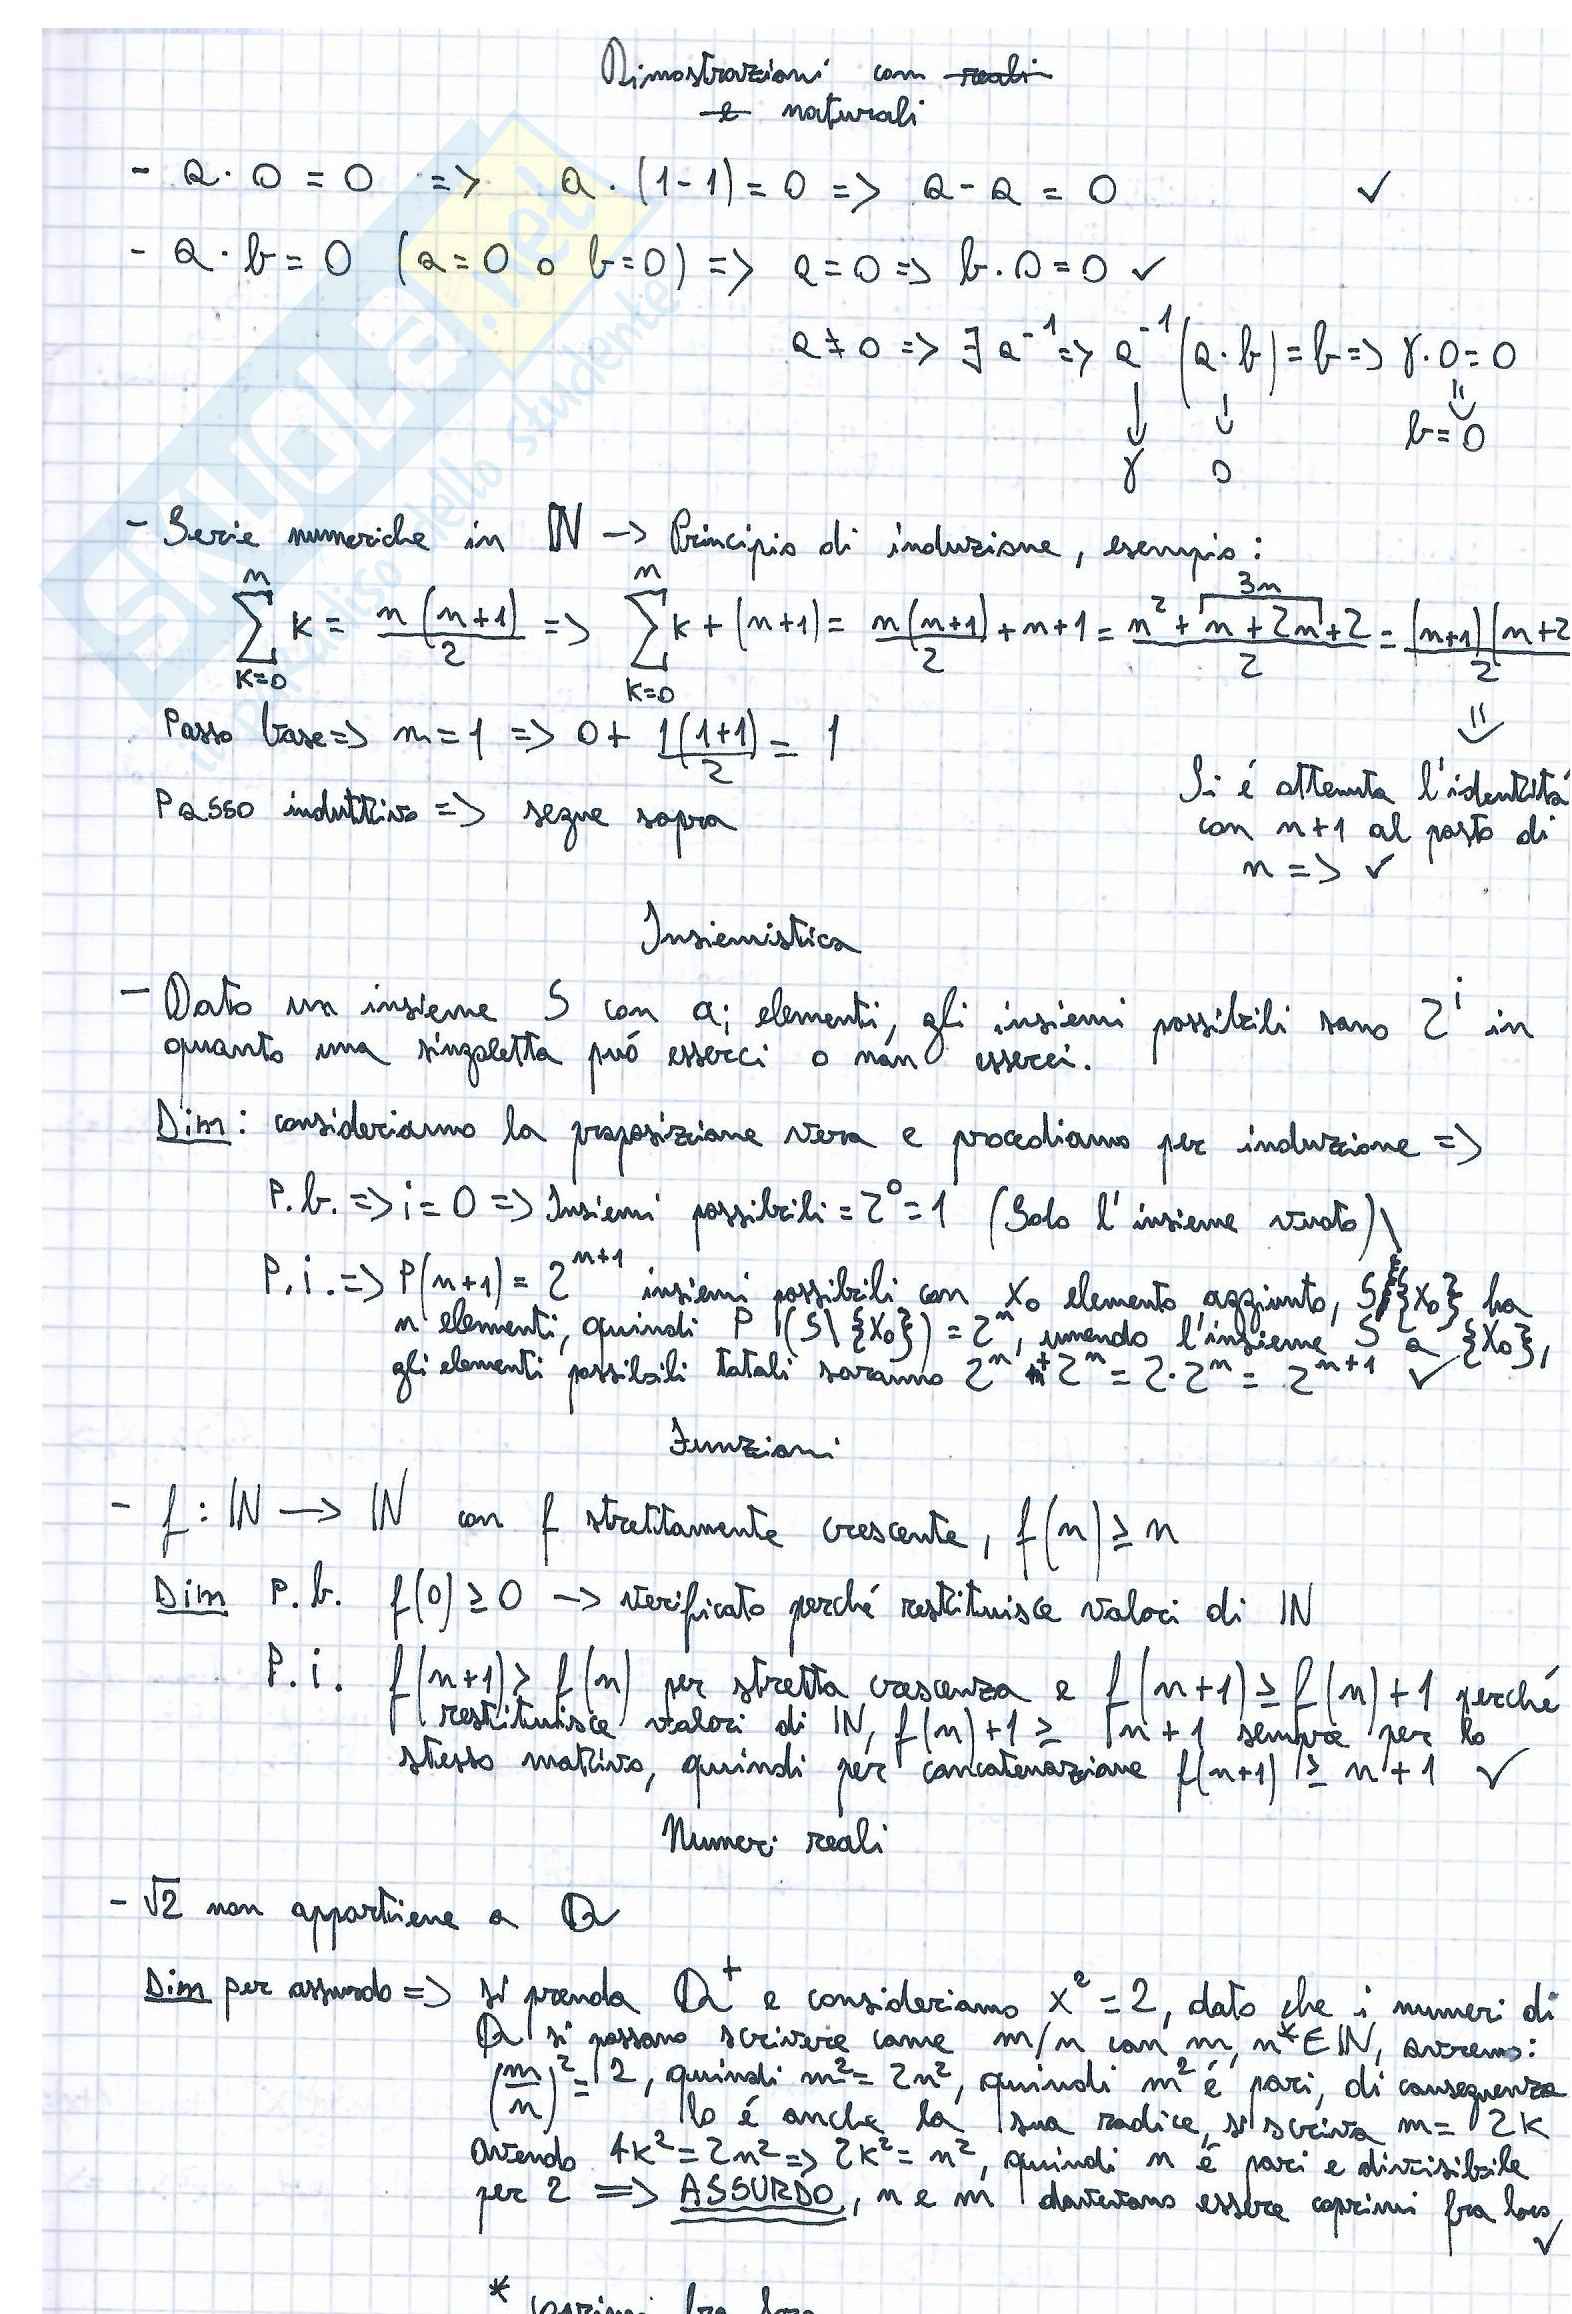 Dimostrazioni con reali
e naturali
- a·0=0 => a·(1-1)=0 => a-a=0 ✓
- a·b=0 (a=0 o b=0) => a=0 => b·0=0 ✓
a≠0 => ∃ a⁻¹ => a⁻¹(a·b)=b => γ·0=0
↓ ↓ ⇓
γ 0 b=0
- Serie numeriche in ℕ -> Principio di induzione, esempio:
n n 3n
∑ k = n(n+1)/2 => ∑ k+(n+1) = n(n+1)/2 + n+1 = (n²+n+2n+2)/2 = (n+1)(n+2)/2
k=0 k=0
⇓
Passo base => n=1 => 0+ 1(1+1)/2 = 1
Si é ottenuta l'identitá
Passo induttivo => segue sopra
con n+1 al posto di
n => ✓
Insiemistica
- Dato un insieme S con aᵢ elementi, gli insiemi possibili sono 2ⁱ in
quanto una singoletta puó esserci o non esserci.
Dim: consideriamo la proposizione vera e procediamo per induzione =>
P.b. => i=0 => Insiemi possibili=2⁰=1 (Solo l'insieme vuoto)
P.i. => P(n+1)=2ⁿ⁺¹ insiemi possibili con x₀ elemento aggiunto, S\{x₀} ha
n elementi, quindi P (S\{x₀})=2ⁿ, unendo l'insieme S a {x₀},
gli elementi possibili totali saranno 2ⁿ+2ⁿ=2·2ⁿ=2ⁿ⁺¹ ✓
Funzioni
- f:ℕ -> ℕ con f strettamente crescente, f(n)≥n
Dim P.b. f(0)≥0 -> verificato perché restituisce valori di ℕ
P.i. f(n+1)> f(n) per stretta crescenza e f(n+1)≥f(n)+1 perché
restituisce valori di ℕ, f(n)+1≥ n+1 sempre per lo
stesso motivo, quindi per concatenazione f(n+1)≥n+1 ✓
Numeri reali
- √2 non appartiene a ℚ
Dim per assurdo => si prenda ℚ⁺ e consideriamo x²=2, dato che i numeri di
ℚ si possono scrivere come m/n con m, n*∈ℕ, avremo:
(m/n)²=2, quindi m²=2n², quindi m² é pari, di conseguenza
lo é anche la sua radice, si scriva m=2k
avendo 4k²=2n² => 2k²=n², quindi n é pari e divisibile
per 2 => ASSURDO, n e m dovevano essere coprimi fra loro
✓
* coprimi fra loro
SKUOLA.net
il paradiso dello studente